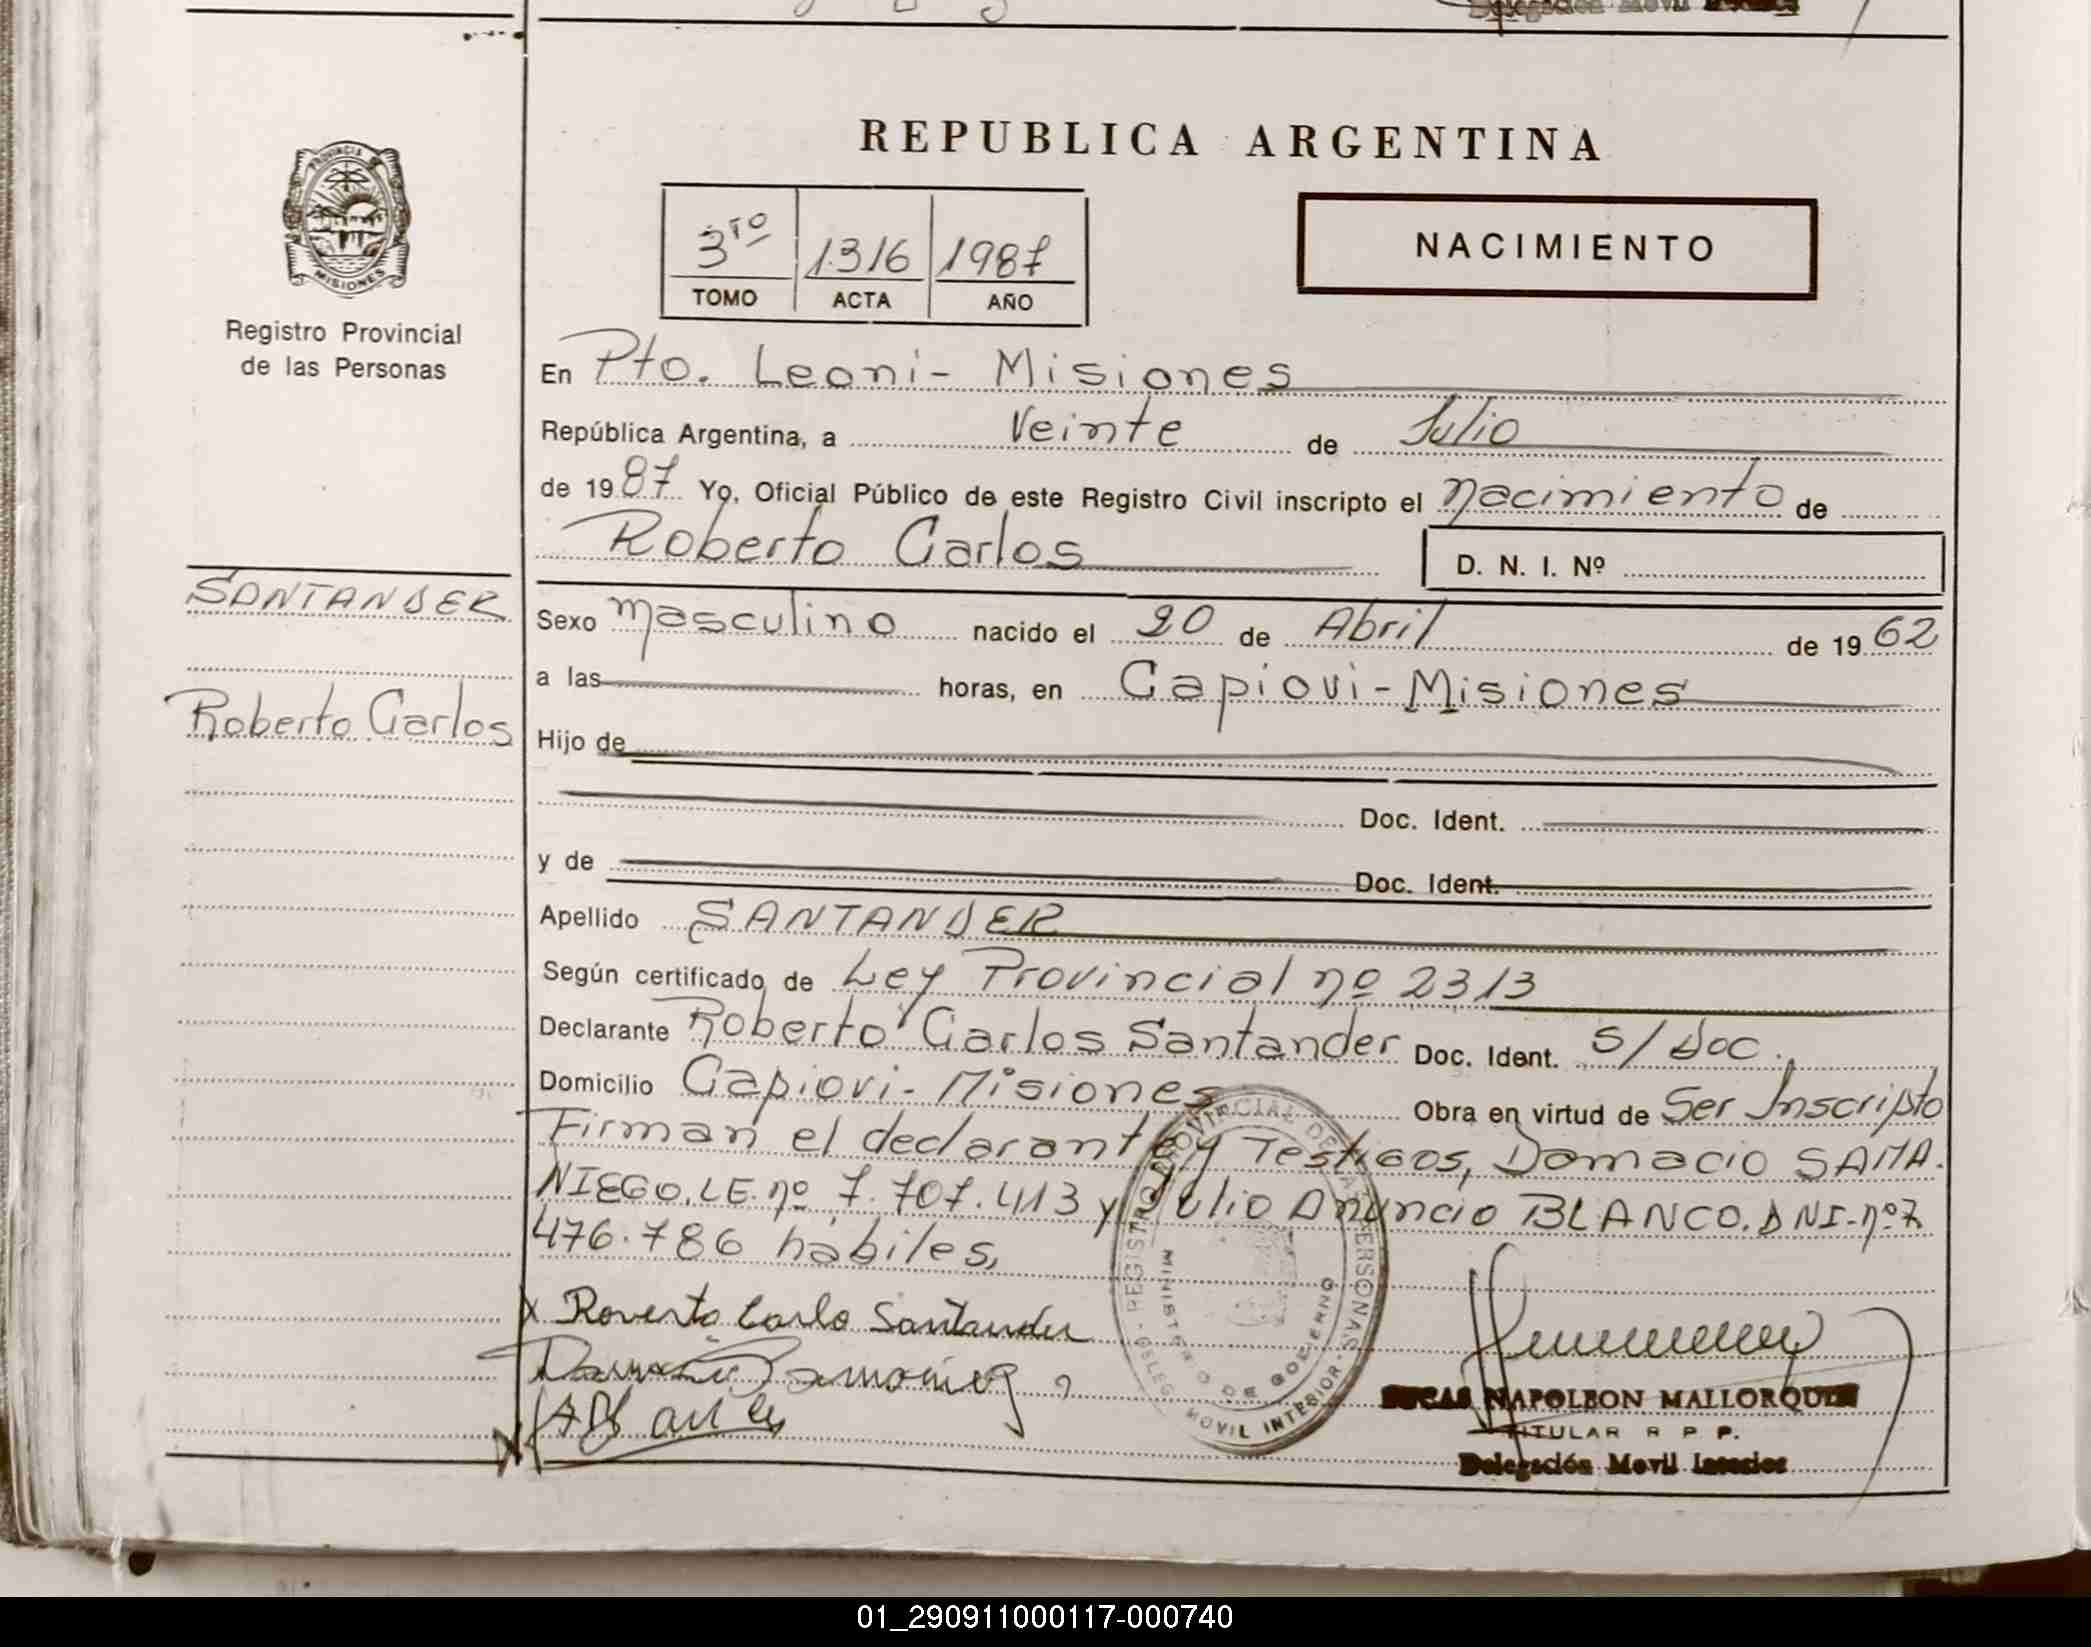 Delegación Movil
REPUBLICA ARGENTINA
PROVINCIA DE
MISIONES
Registro Provincial
de las Personas
3ro 1316 1987
TOMO ACTA AÑO
NACIMIENTO
En Pto. Leoni - Misiones
República Argentina, a Veinte de Julio
de 1987 Yo, Oficial Público de este Registro Civil inscripto el nacimiento de
Roberto Carlos
D. N. I. Nº
SANTANDER
Roberto Carlos
Sexo masculino nacido el 20 de Abril de 1962
a las horas, en Capiovi - Misiones
Hijo de
Doc. Ident.
y de Doc. Ident.
Apellido SANTANDER
Según certificado de Ley Provincial nº 2313
Declarante Roberto Carlos Santander Doc. Ident. S/Doc.
Domicilio Capiovi - Misiones Obra en virtud de Ser Inscripto
Firman el declarante y Testigos, Damacio SAMA.
NIEGO. LE. nº 7.707.413 y Julio Anuncio BLANCO. DNI-nº 7.
476.786 habiles,
x Roverto Carlo Santander
REGISTRO PROVINCIAL DE LAS PERSONAS
MINISTERIO DE GOBIERNO
DELEG. MOVIL INTERIOR
LUCAS NAPOLEON MALLORQUIN
TITULAR R P P.
Delegación Movil Interior
01_290911000117-000740